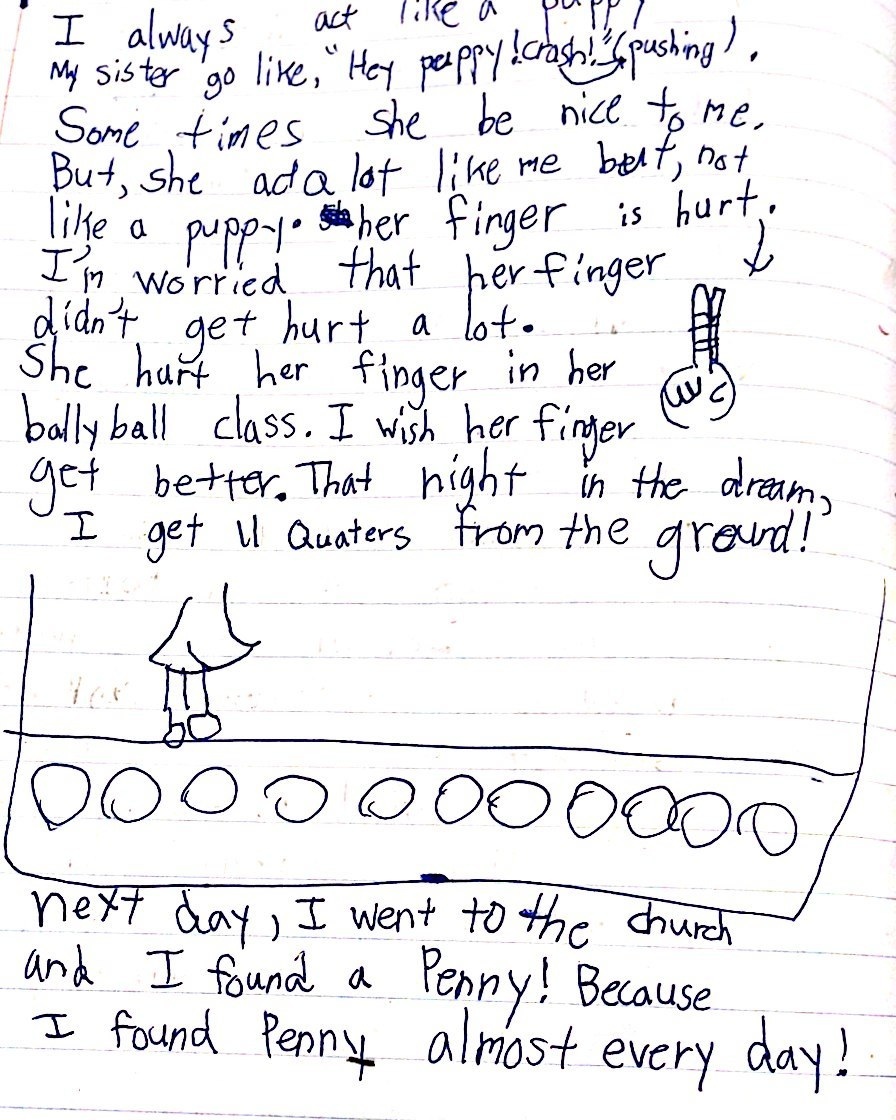 I always act like a puppy
My sister go like, "Hey puppy! crash!" (pushing).
Some times she be nice to me.
But, she act a lot like me but, not
like a puppy. her finger is hurt.
I'm worried that her finger
didn't get hurt a lot.
She hurt her finger in her
bally ball class. I wish her finger
get better. That night in the dream,
I get 11 Quaters from the ground!
next day, I went to the church
and I found a Penny! Because
I found Penny almost every day!